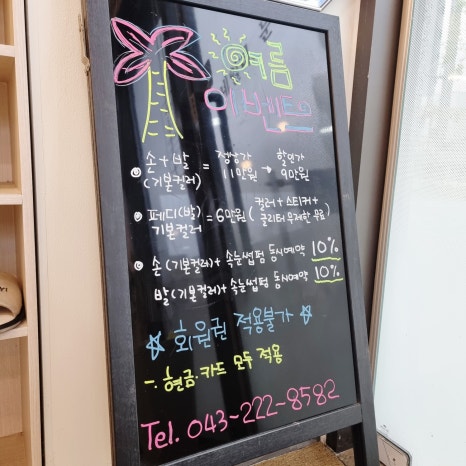 여름
이벤트
손+발 = 정상가 할인가
(기본컬러) 11만원 → 9만원
페디(발) = 6만원 ( 컬러+스티커+
기본컬러 글리터 무제한 무료)
손(기본컬러)+속눈썹펌 동시예약 10%
발(기본컬러)+속눈썹펌 동시예약 10%
☆ 회원권 적용불가 ☆
-. 현금.카드 모두 적용
Tel. 043~222~8582